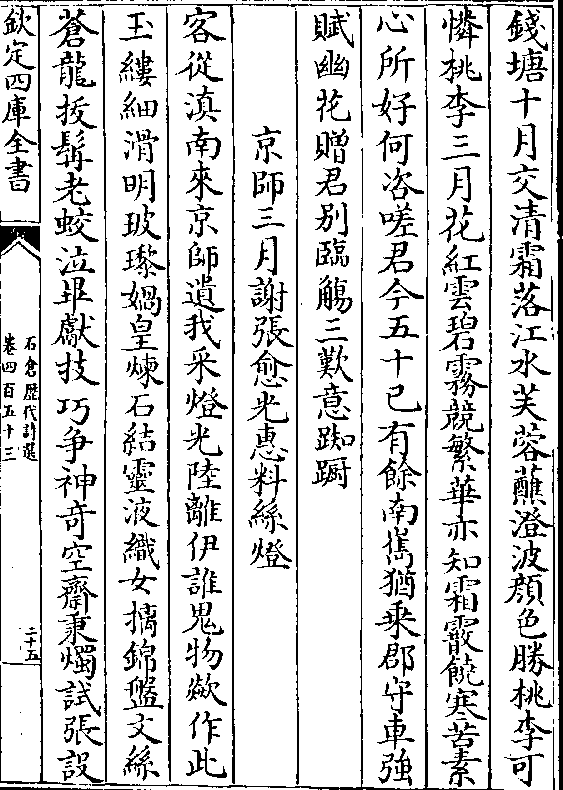 錢塘十月交清霜落江水芙蓉蘸澄波顔色勝桃李可
憐桃李三月花紅雲碧霧競繁華亦知霜霰饒寒苦素
心所好何咨嗟君今五十已有餘南雋猶乘郡守車強
賦幽花贈君别臨觴三歎意踟蹰
京師三月謝張愈光惠料絲燈
客從滇南來京師遺我采燈光陸離伊誰鬼物歘作此
玉縷細滑明玻瓈媧皇煉石結靈液織女摛錦盤文絲
蒼龍拔髯老蛟泣畢獻技巧争神竒空齋秉燭試張設
欽定四庫全書
石倉歴代詩選
卷四百五十三
二十五